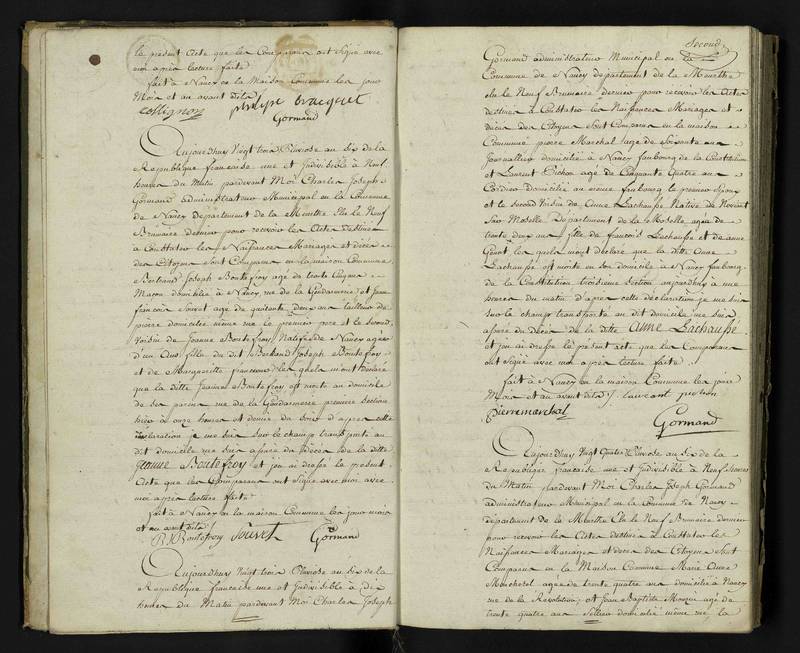 le présent acte que les Comparans ont Signé avec
moi après lecture faite
fait à Nancy en la Maison Commune les jour
Mois et an avant dits
Collignon philipe bracquet
Gormand
Aujourdhuy Vingt trois Pluviose au Six de la
République française une et Indivisible à Neuf
heures du Matin pardevant Moi Charles Joseph
Gormand administrateur Municipal en la Commune
de Nancy Departement de la Meurthe Elu le Neuf
Brumaire Dernier pour recevoir les Actes destinés
à Constater les Naissances Mariages et décès
des Citoyens Sont Comparus en la maison Commune
Bertrand Joseph Boutefroy agé de trente Cinq ans
Maçon domicilié à Nancy rue de la Gendarmerie, et Jean
françois Souvet agé de quarante Deux ans tailleur de
pierre domicilié même rue le premier pere et le second
Voisin de Jeanne Boutefroy Native de Nancy agée
d'un an fille du dit Bertrand Joseph Boutefroy
et de Marguerite les quels m'ont déclaré
que la ditte Jeanne Boutefroy est morte au domicile
de son père rue de la Gendarmerie première Section
hier à onze heures et demie du Soir d'après cette
déclaration je me suis Sur le champ transporté au
dit domicile me suis assuré du Décès de la ditte
Jeanne Boutefroy et j'en ai dressé le présent
Acte que les Comparans ont Signé avec moi
après lecture faite
fait à Nancy en la maison Commune les jour mois
et an avant dits
B J Boutefroy Souvet Gormand
Aujourdhuy Vingt trois Pluviose au Six de la
République française une et Indivisible à Dix
heures du Matin pardevant Moi Charles Joseph
Second
Gormand administrateur Municipal en la
Commune de Nancy département de la Meurthe
élu le Neuf Brumaire dernier pour recevoir les Actes
destinés à Constater les Naissances Mariages et
décès des Citoyens Sont Comparus en la maison
Commune pierre Marchal agé de Soixante ans
Journallier domicilié à Nancy faubourg de la Constitution
et Laurent Pichon agé de Cinquante Quatre ans
Cordier Domicilié au même faubourg le premier
et le second Voisin de Anne Lachausse Native de Novéant
Sur Moselle Departement de la Moselle agée de
trente deux ans fille de françois Lachausse et de anne
les quels m'ont déclaré que la ditte Anne
Lachausse est morte en son domicile à Nancy faubourg
de la Constitution troisieme Section aujourdhuy à une
heure du matin d'après cette déclaration je me suis
Sur le champ transporté au dit domicile me suis
assuré du Décès de la ditte Anne Lachausse
et j'en ai dressé le présent acte que les Comparans
ont Signé avec moi après lecture faite
fait à Nancy en la maison Commune les jour
Mois et an avant dits laurant pichon
pierre marchal
Gormand
Aujourdhuy Vingt Quatre Pluviose au Six de la
République française une et Indivisible à Neuf heures
du Matin pardevant Moi Charles Joseph Gormand
administrateur Municipal en la Commune de Nancy
département de la Meurthe Elu le Neuf Brumaire dernier
pour recevoir les Actes destinés à Constater les
Naissances Mariages et décès des Citoyens Sont
Comparus en la Maison Commune Marie Anne
agée de trente quatre ans domiciliée à Nancy
rue de la Révolution, et Jean Baptiste agé de
trente quatre ans Sellier domicilié même rue, la